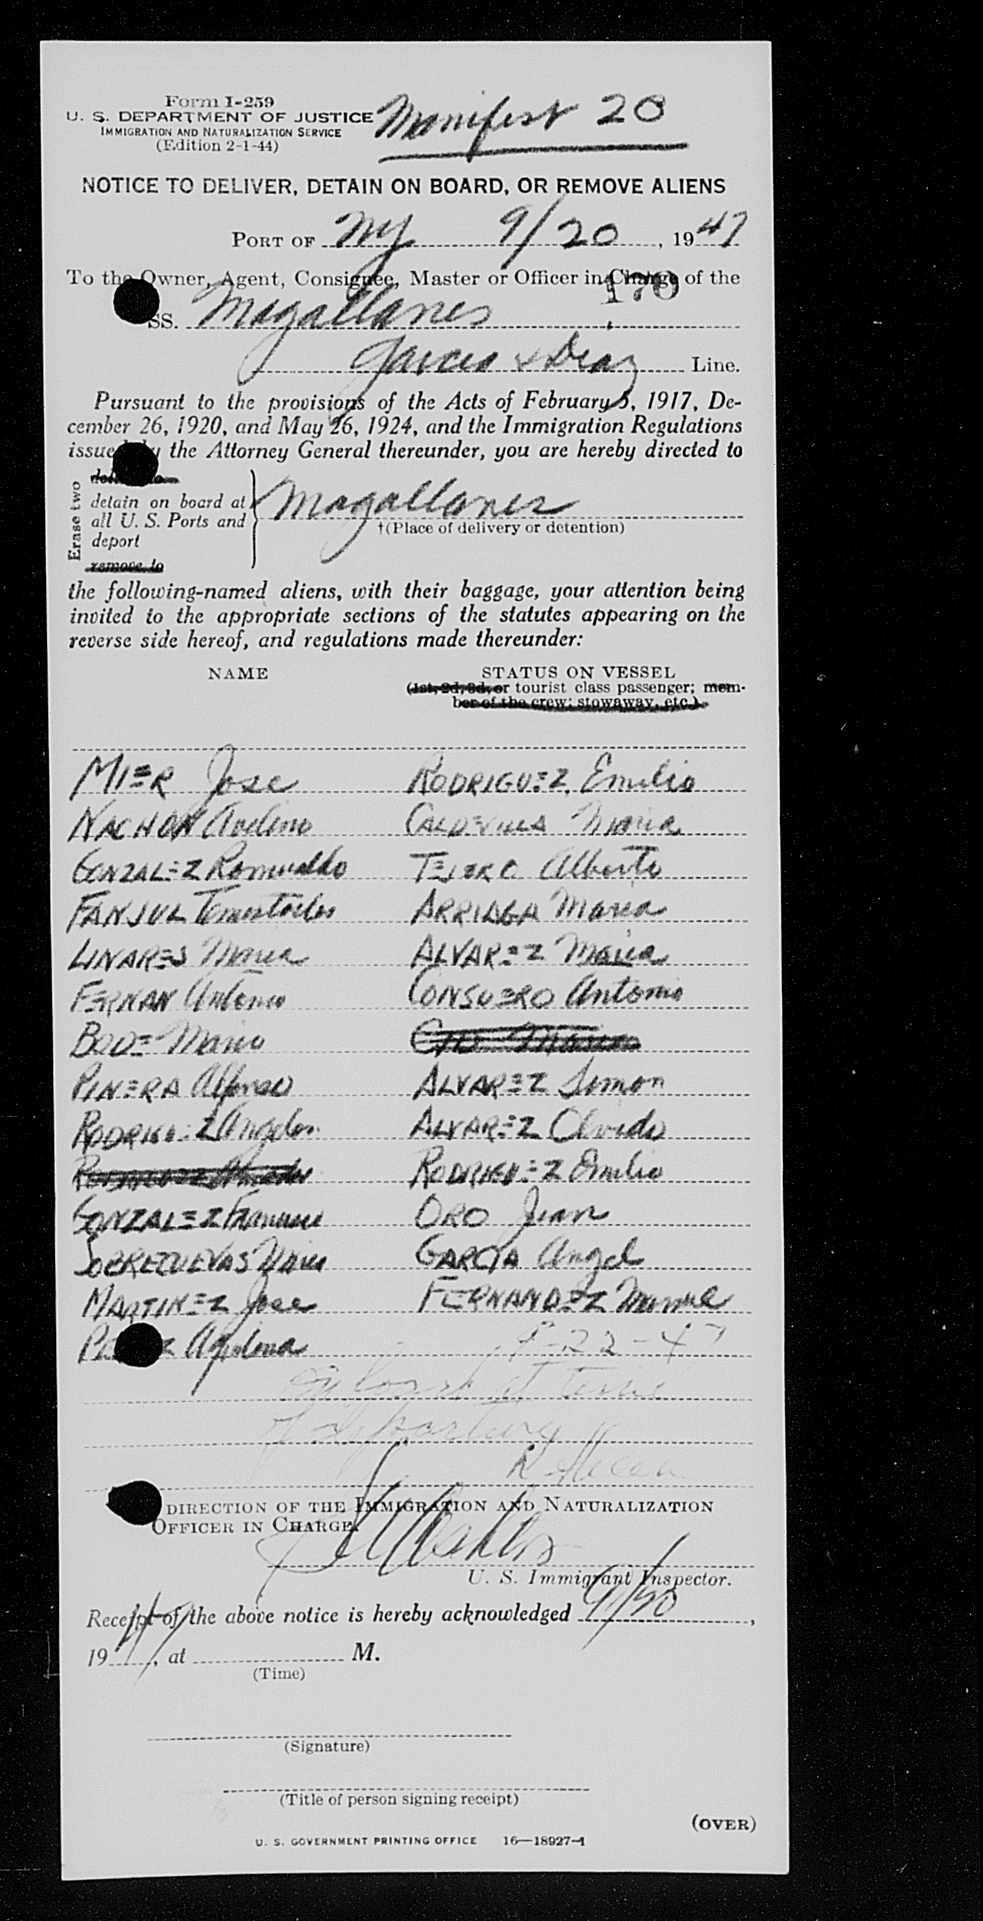 Form I-259
U. S. DEPARTMENT OF JUSTICE
IMMIGRATION AND NATURALIZATION SERVICE
(Edition 2-1-44)
Manifest 20
NOTICE TO DELIVER, DETAIN ON BOARD, OR REMOVE ALIENS
PORT OF NY 9/20, 1947
To the Owner, Agent, Consignee, Master or Officer in Charge of the
170
SS. Magallanes
Garcia & Diaz Line.
Pursuant to the provisions of the Acts of February 5, 1917, De-
cember 26, 1920, and May 26, 1924, and the Immigration Regulations
issued by the Attorney General thereunder, you are hereby directed to
Erase two
detain on board at
all U. S. Ports and
deport
remove to
Magallanes
†(Place of delivery or detention)
the following-named aliens, with their baggage, your attention being
invited to the appropriate sections of the statutes appearing on the
reverse side hereof, and regulations made thereunder:
NAME STATUS ON VESSEL
(1st, 2d, 3d, or tourist class passenger; mem-
ber of the crew; stowaway, etc.)
MIER Jose RODRIGUEZ, Emilio
NACHON Avelino Maria
GONZALEZ Romualdo TEJERO Alberto
FANJUL ARRIAGA Maria
LINARES Maria ALVAREZ Maria
FERNAN Antonio CONSUERO Antonio
BODE Mario
PINERA Alfonso ALVAREZ Simon
RODRIGUEZ Angeles ALVAREZ Olvido
RODRIGUEZ Emilio
GONZALEZ ORO Juan
SOBRECUEVAS GARCIA Angel
MARTINEZ Jose FERNANDEZ Manuel
9-22-47
On board at time
of departure
DIRECTION OF THE IMMIGRATION AND NATURALIZATION
OFFICER IN CHARGE.
U. S. Immigrant Inspector.
Receipt of the above notice is hereby acknowledged 9/20,
1947, at M.
(Time)
(Signature)
(Title of person signing receipt)
(OVER)
U. S. GOVERNMENT PRINTING OFFICE 16—18927-1